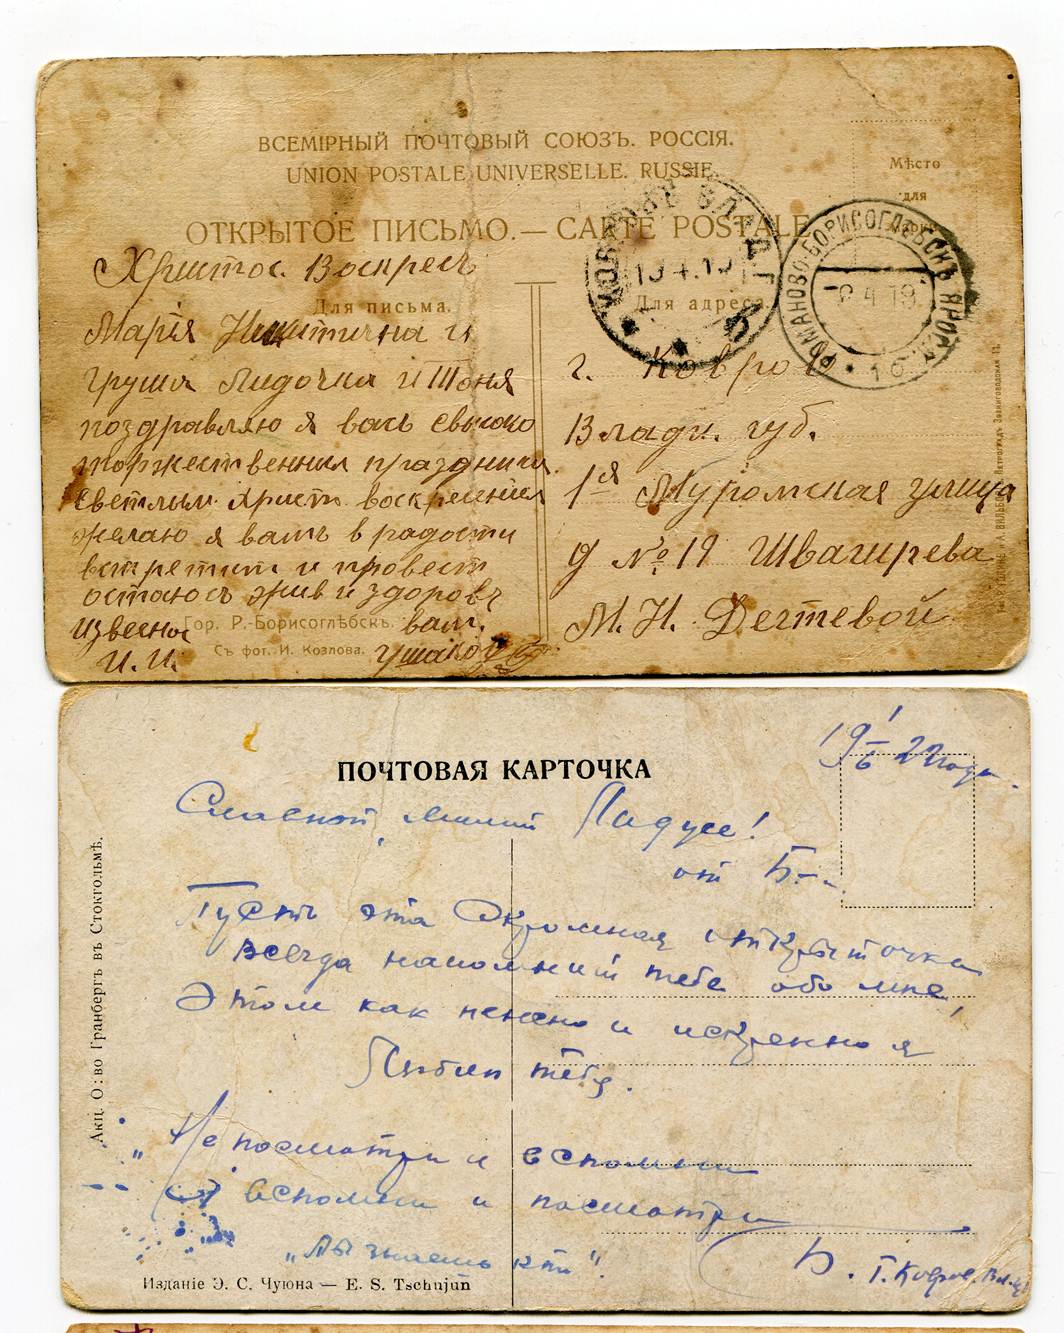 ВСЕМІРНЫЙ ПОЧТОВЫЙ СОЮЗЪ. РОССІЯ.
UNION POSTALE UNIVERSELLE. RUSSIE.
ОТКРЫТОЕ ПИСЬМО.— CARTE POSTALE
Мѣсто
для
РОМАНОВО-БОРИСОГЛѢБСКЪ ЯРОСЛ.
Для письма.
Для адреса.
Христос Воскресъ
Марія Никитична и
Груша Лидочка и Тоня
поздравляю я васъ
торжественным праздником
светлым христ воскресения
желаю я вамъ в радости
встретит и провест
остаюсь жив и здоровъ
вам.
И. И. Ушаков
Гор. Р.-Борисоглѣбскъ.
Съ фот. И. Козлова.
г. Ковров
Влади. губ.
1я Муромская улица
д № 19 Швагирева
М. Н. Дегтевой
ПОЧТОВАЯ КАРТОЧКА
Славной, милой Ладусе!
от Б—
Пусть эта скромная открыточка
всегда напомнит тебе обо мне,
Этом как нежно и искренно я
Люблю тебя.
Не посмотри и вспомни
вспомни и посмотри
„Ты знаешь кто“.
Б. Г. Ковров
Акц. О:во Гранбергъ въ Стокгольмѣ.
Изданіе Э. С. Чуюна — E. S. Tschujun